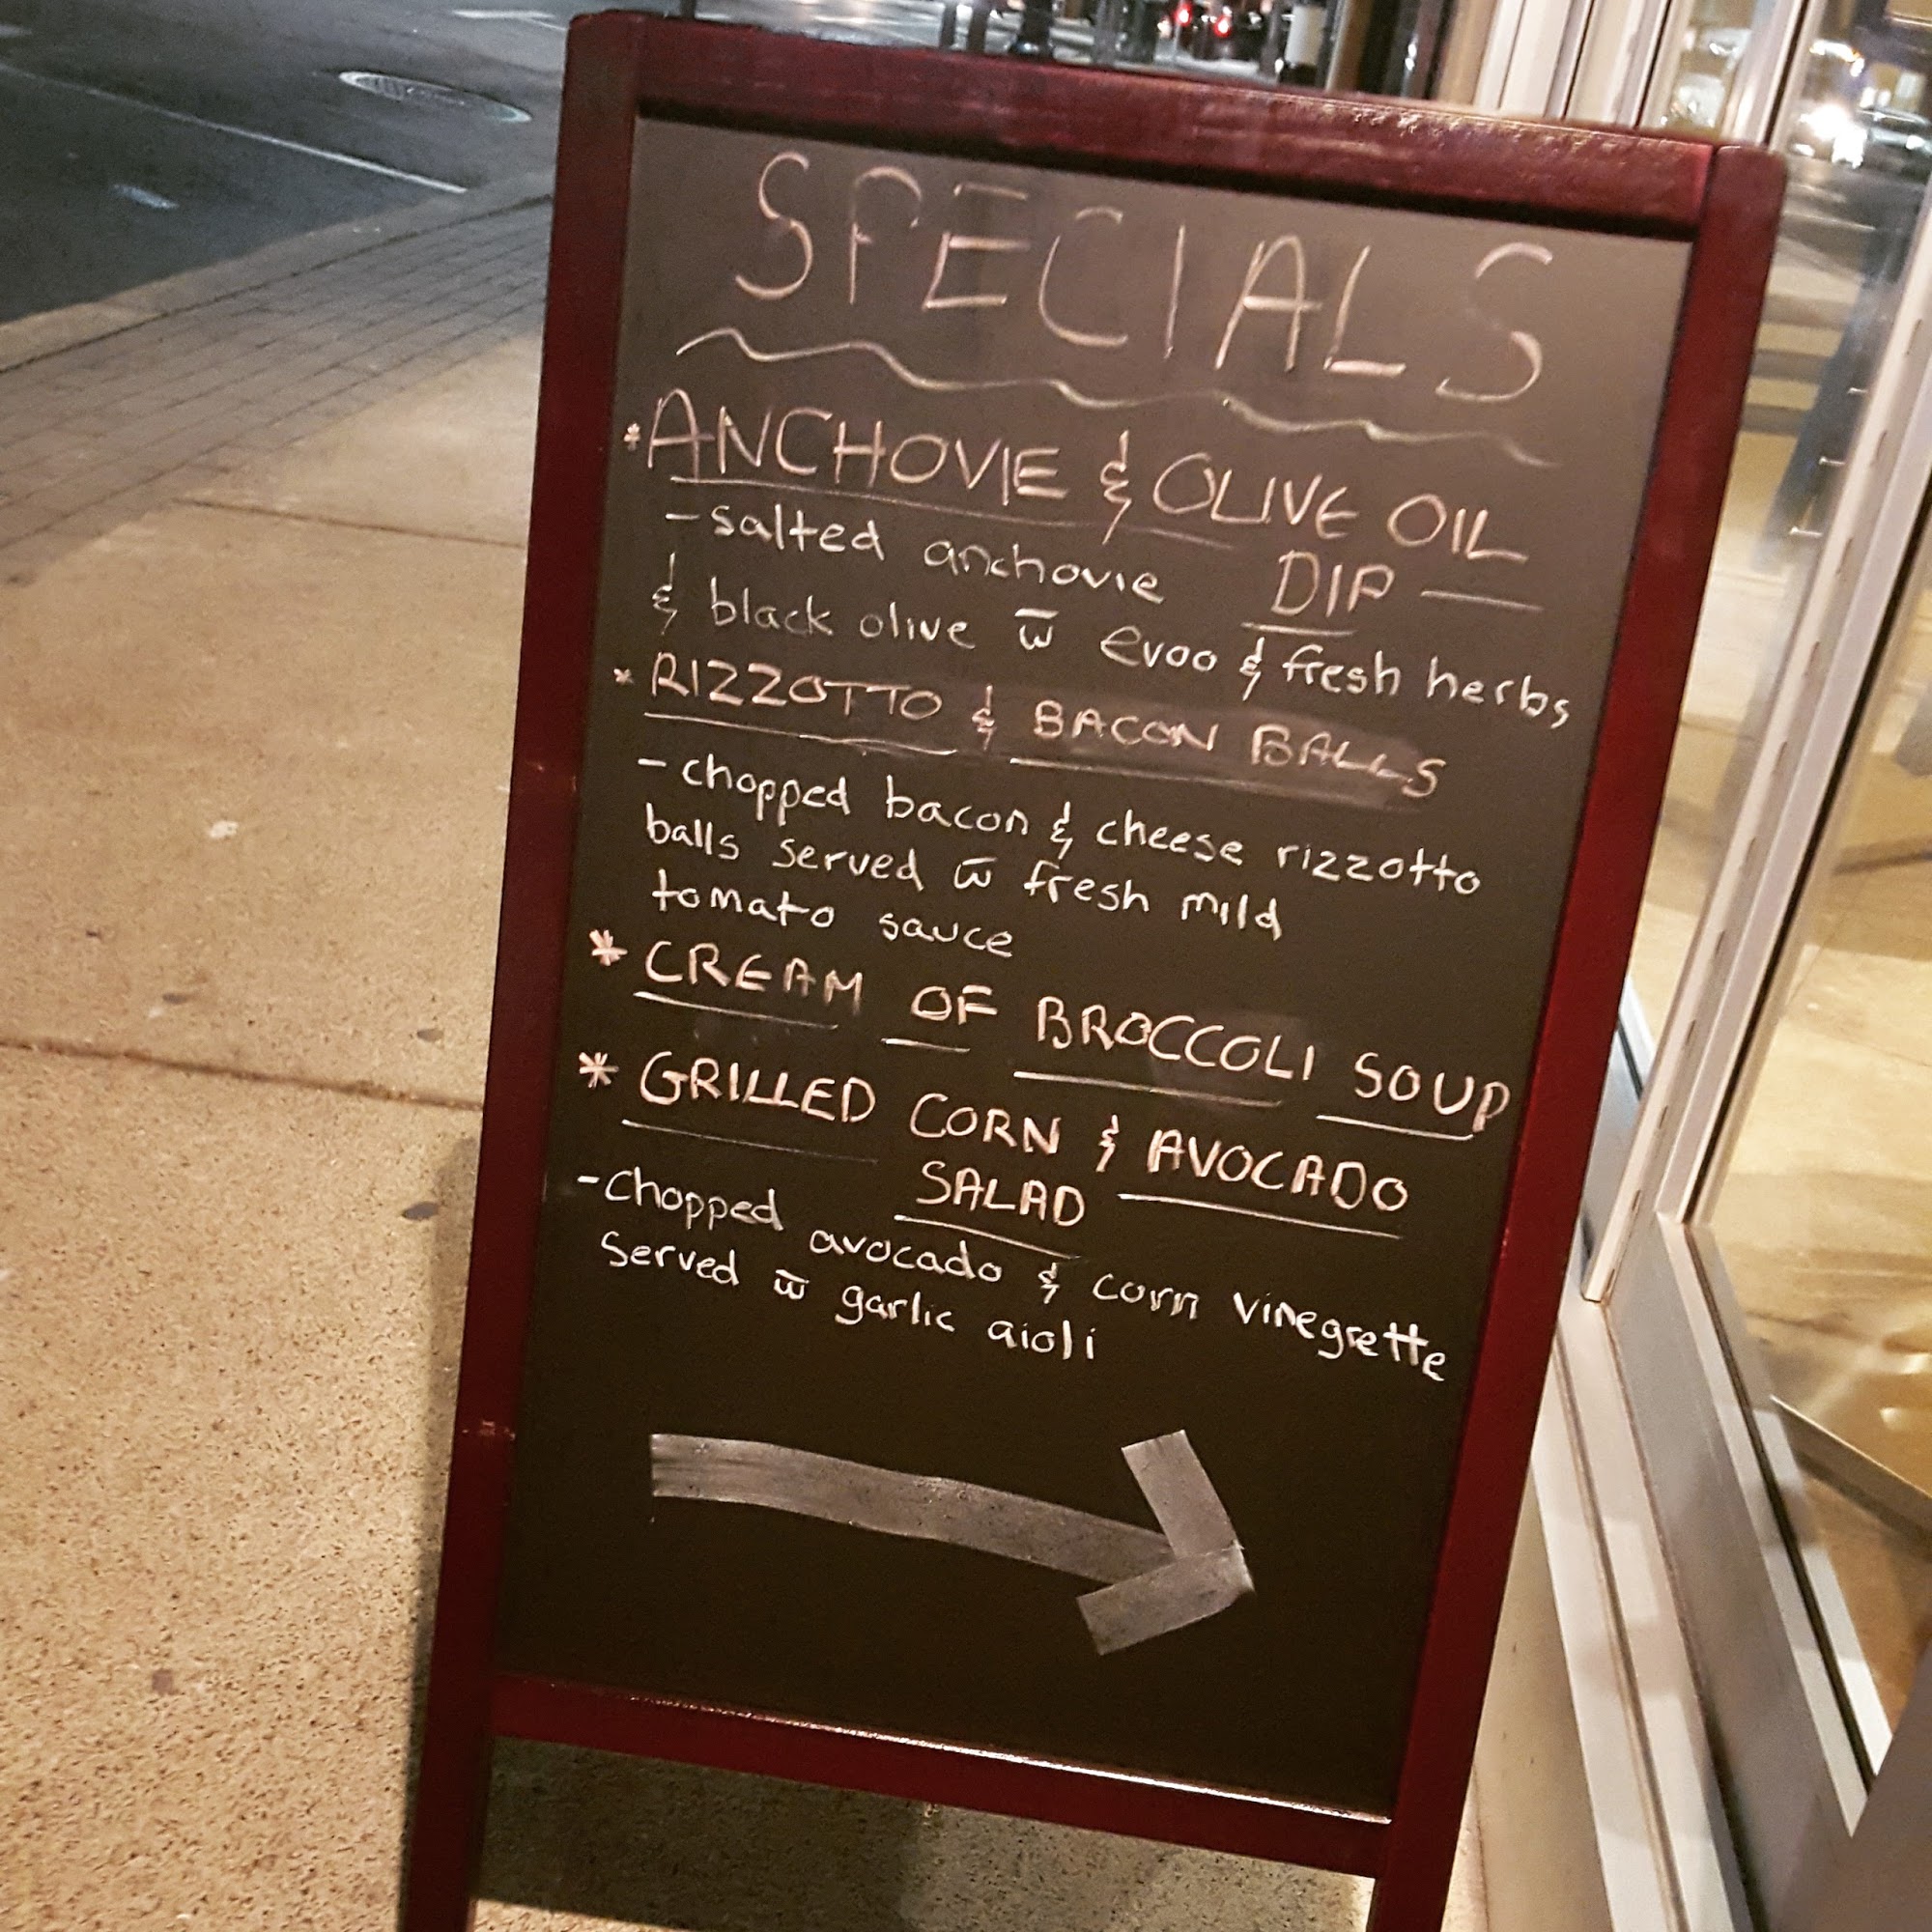 SPECIALS
* ANCHOVIE & OLIVE OIL
DIP
- salted anchovie
& black olive w̅ evoo & fresh herbs
* RIZZOTTO & BACON BALLS
- chopped bacon & cheese rizzotto
balls served w̅ fresh mild
tomato sauce
* CREAM OF BROCCOLI SOUP
* GRILLED CORN & AVOCADO
SALAD
- chopped avocado & corn vinegrette
served w̅ garlic aioli